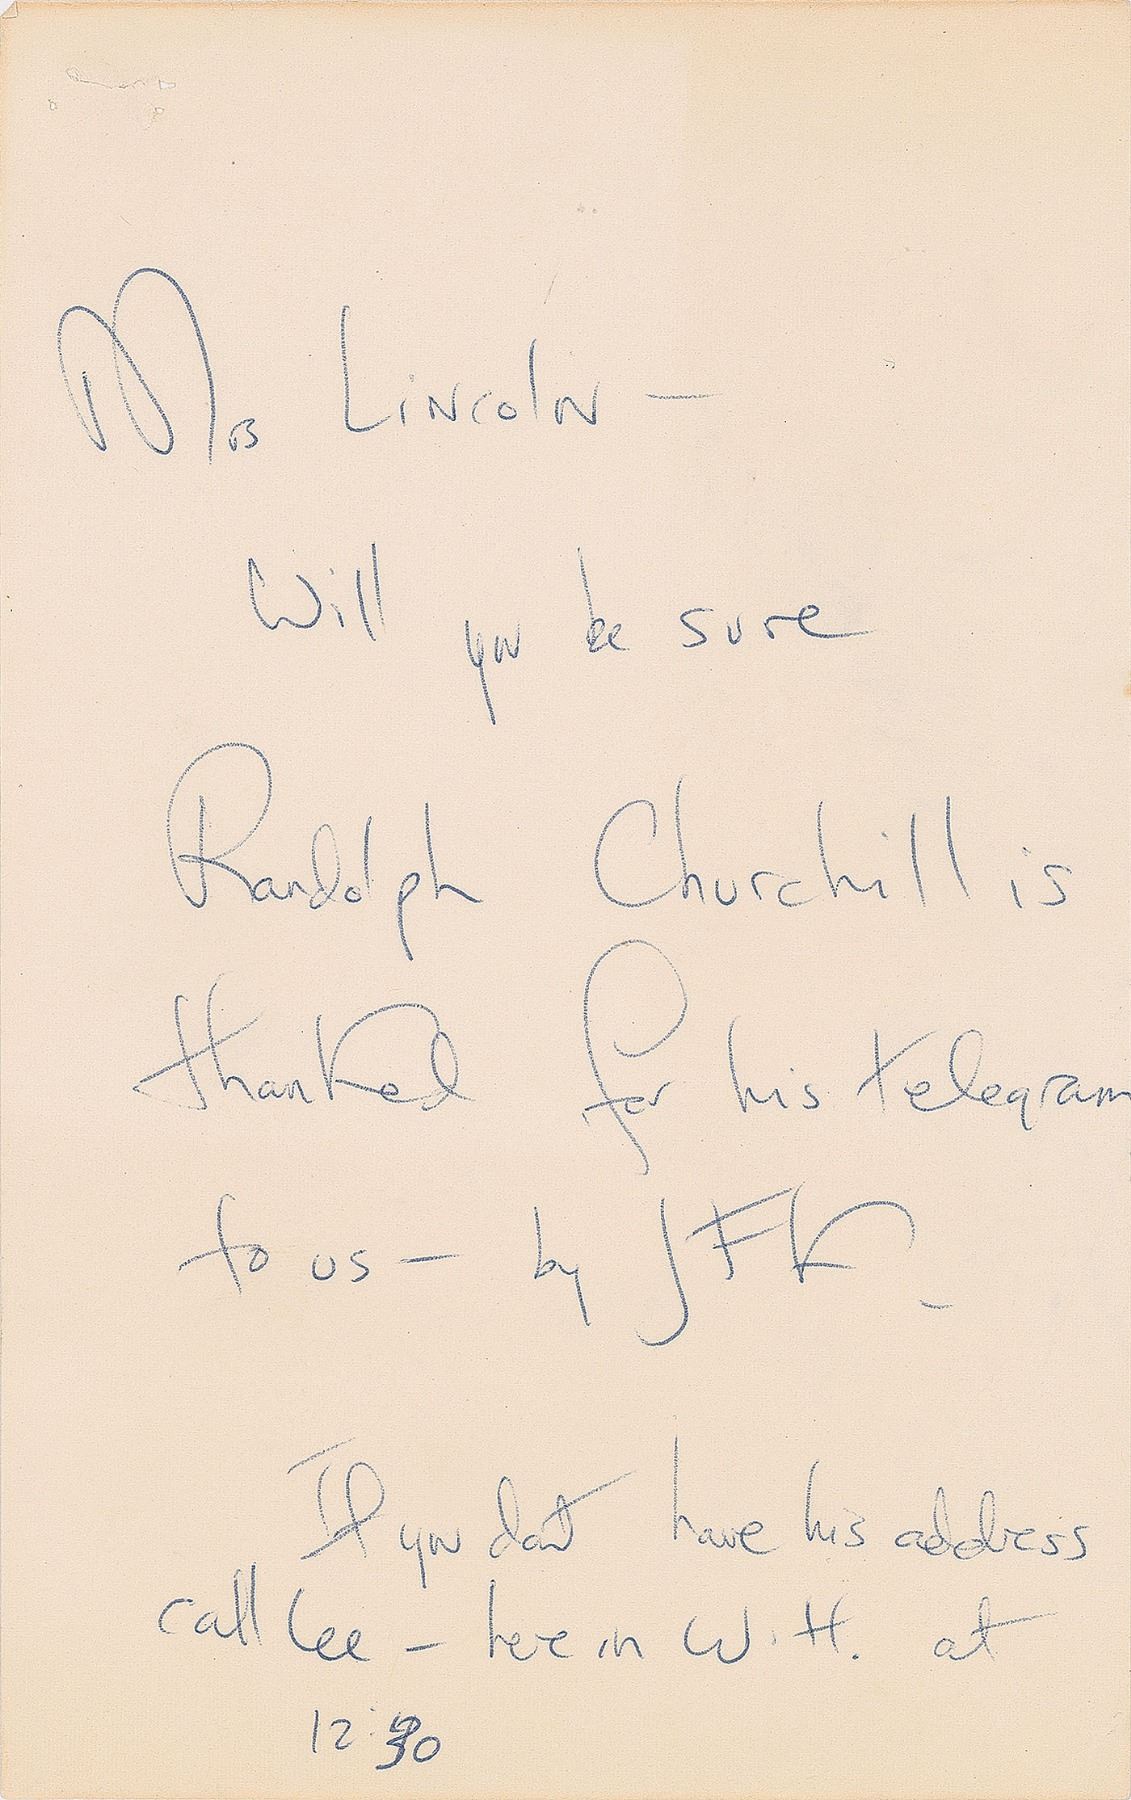 Mrs Lincoln —
Will you be sure
Randolph Churchill is
thanked for his telegram
to us — by JFK –
If you don't have his address
call Lee — here in W.H. at
12:30